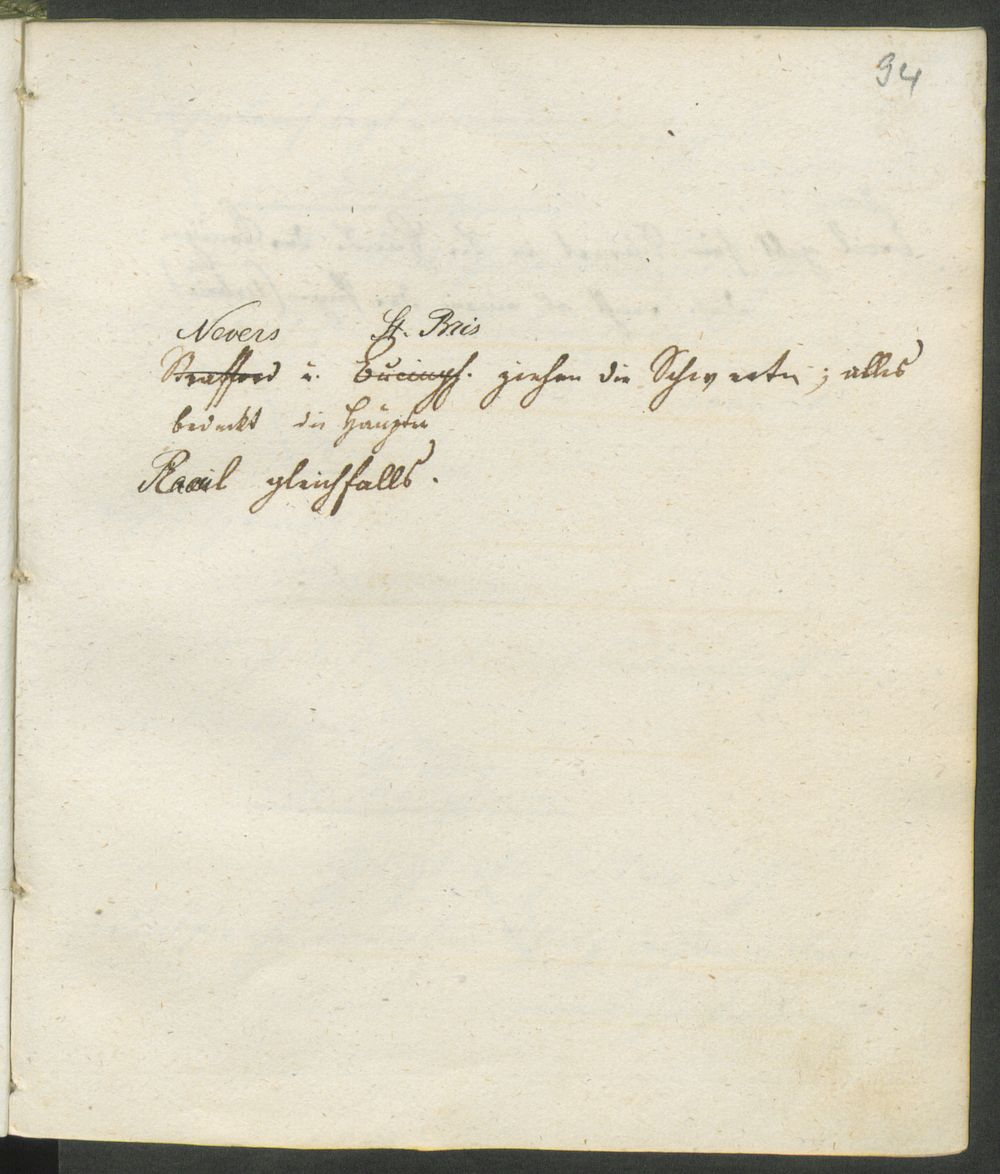 94
Nevers St. Bris
Strafford u. Bucingh. ziehen die Schwerter; alles
bedeckt die Häupter
Raoul gleichfalls.